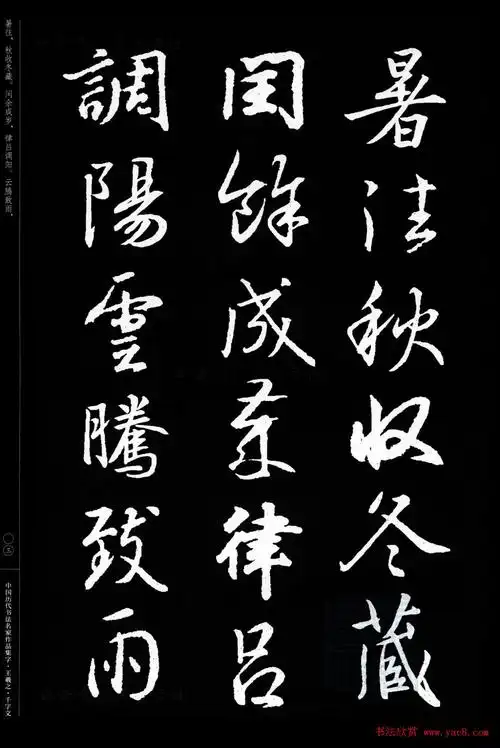 暑往秋收冬藏
閏餘成歲律呂
調陽雲騰致雨
暑往，秋收冬藏。闰余成岁，律吕调阳。云腾致雨，
〇三
中国历代书法名家作品集字·王羲之·千字文
书法欣赏 www.yac8.com